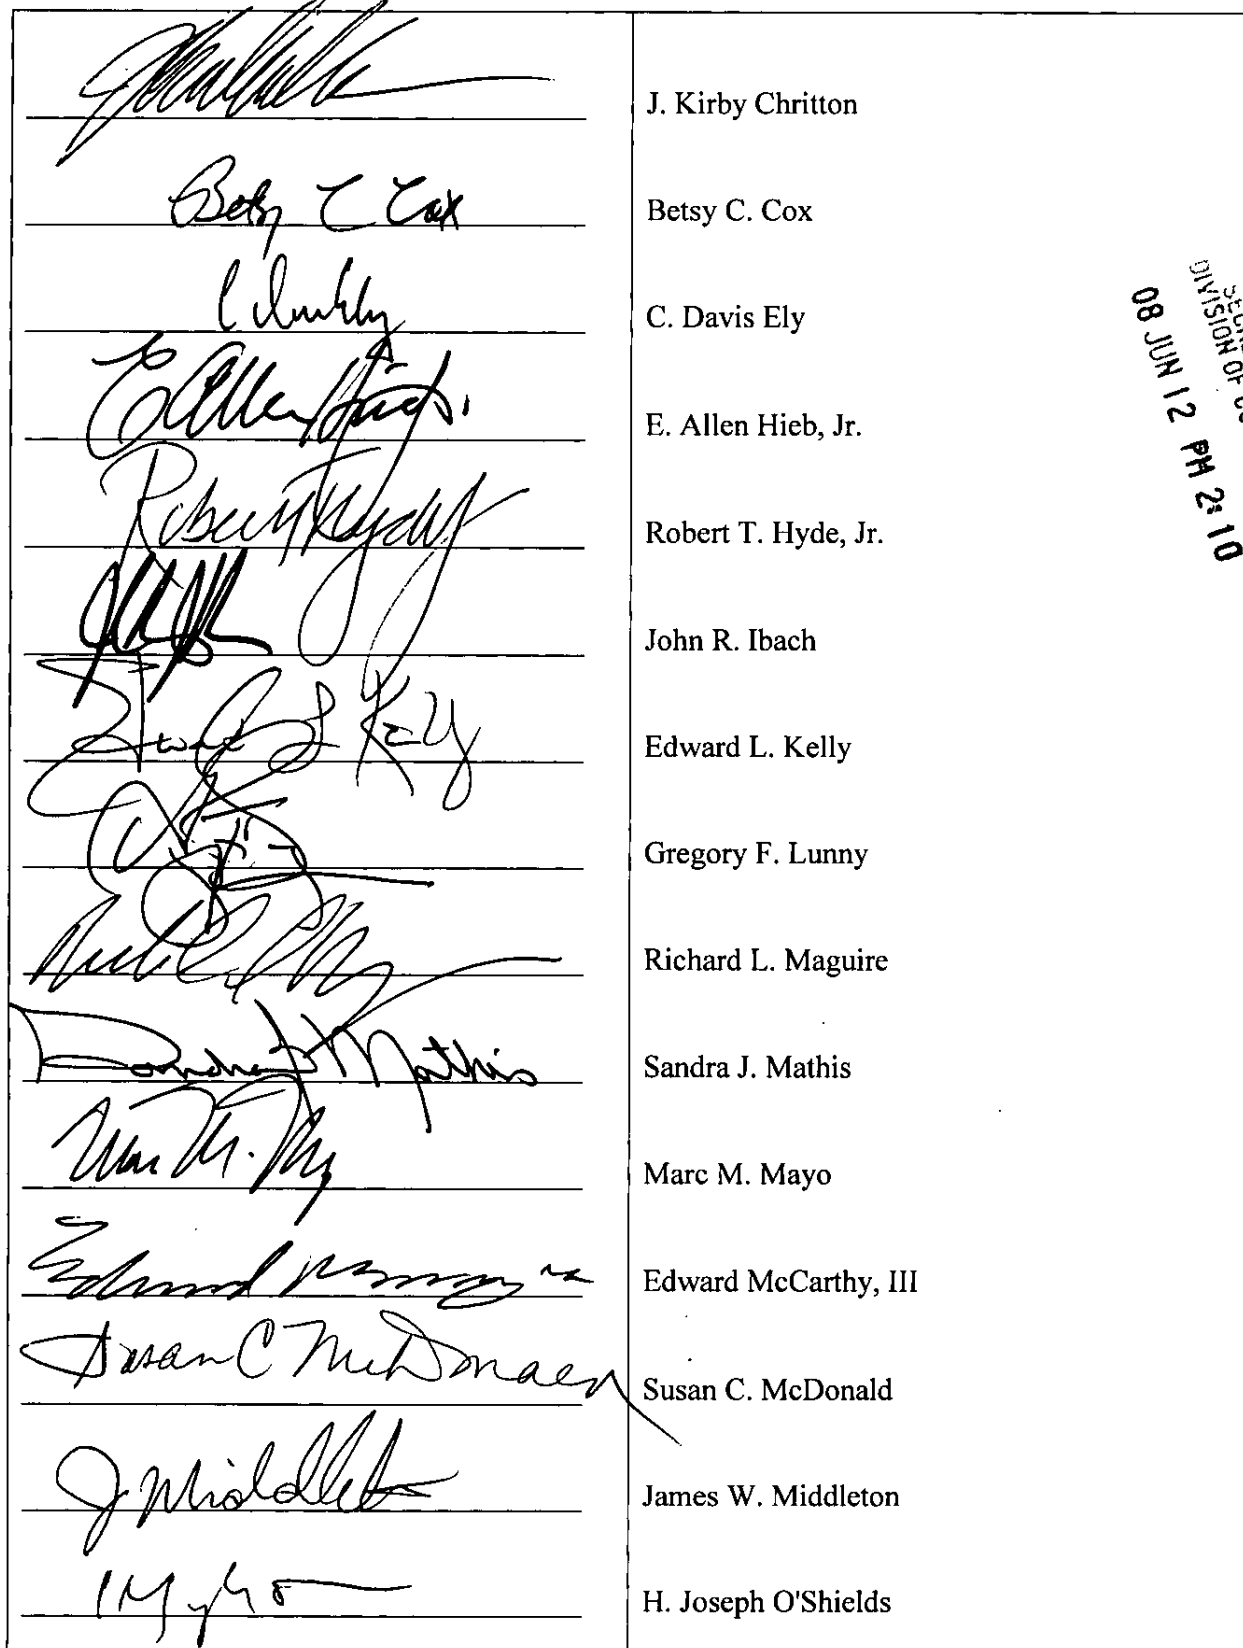 J. Kirby Chritton
Betsy C Cox
Betsy C. Cox
C. Davis Ely
E Allen Hieb Jr.
E. Allen Hieb, Jr.
Robert T Hyde Jr
Robert T. Hyde, Jr.
John R. Ibach
Edward L Kelly
Edward L. Kelly
Gregory F. Lunny
Richard L. Maguire
Sandra J Mathis
Sandra J. Mathis
Marc M. Mayo
Marc M. Mayo
Edward McCarthy, III
Susan C McDonald
Susan C. McDonald
J Middleton
James W. Middleton
H. Joseph O'Shields
DIVISION OF
08 JUN 12 PM 2:10